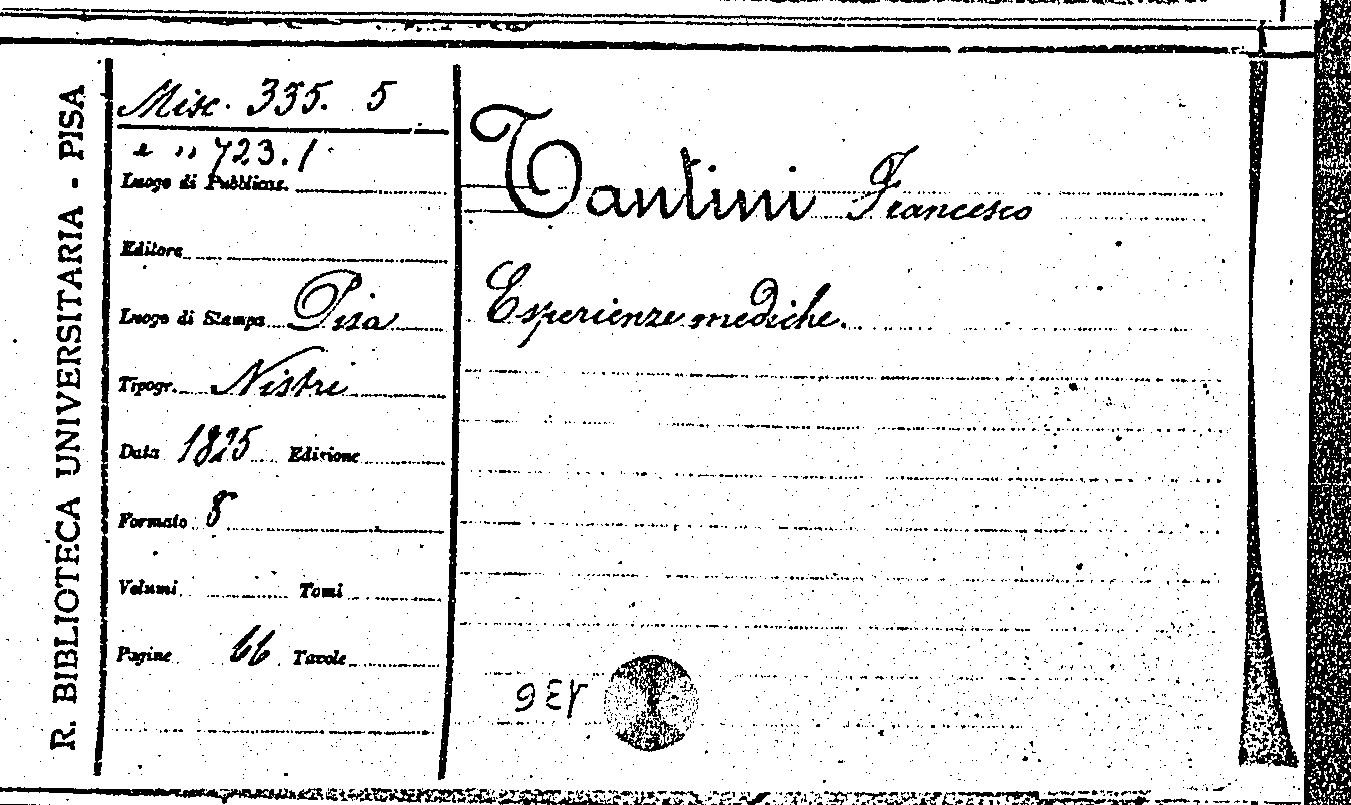 R. BIBLIOTECA UNIVERSITARIA - PISA
Misc. 335. 5
e " 723.1
Luogo di Pubblicaz.
Editore
Luogo di Stampa Pisa
Tipogr. Nistri
Data 1825 Edizione
Formato 8
Volumi Tomi
Pagine 66 Tavole
Tantini Francesco
Esperienze mediche.